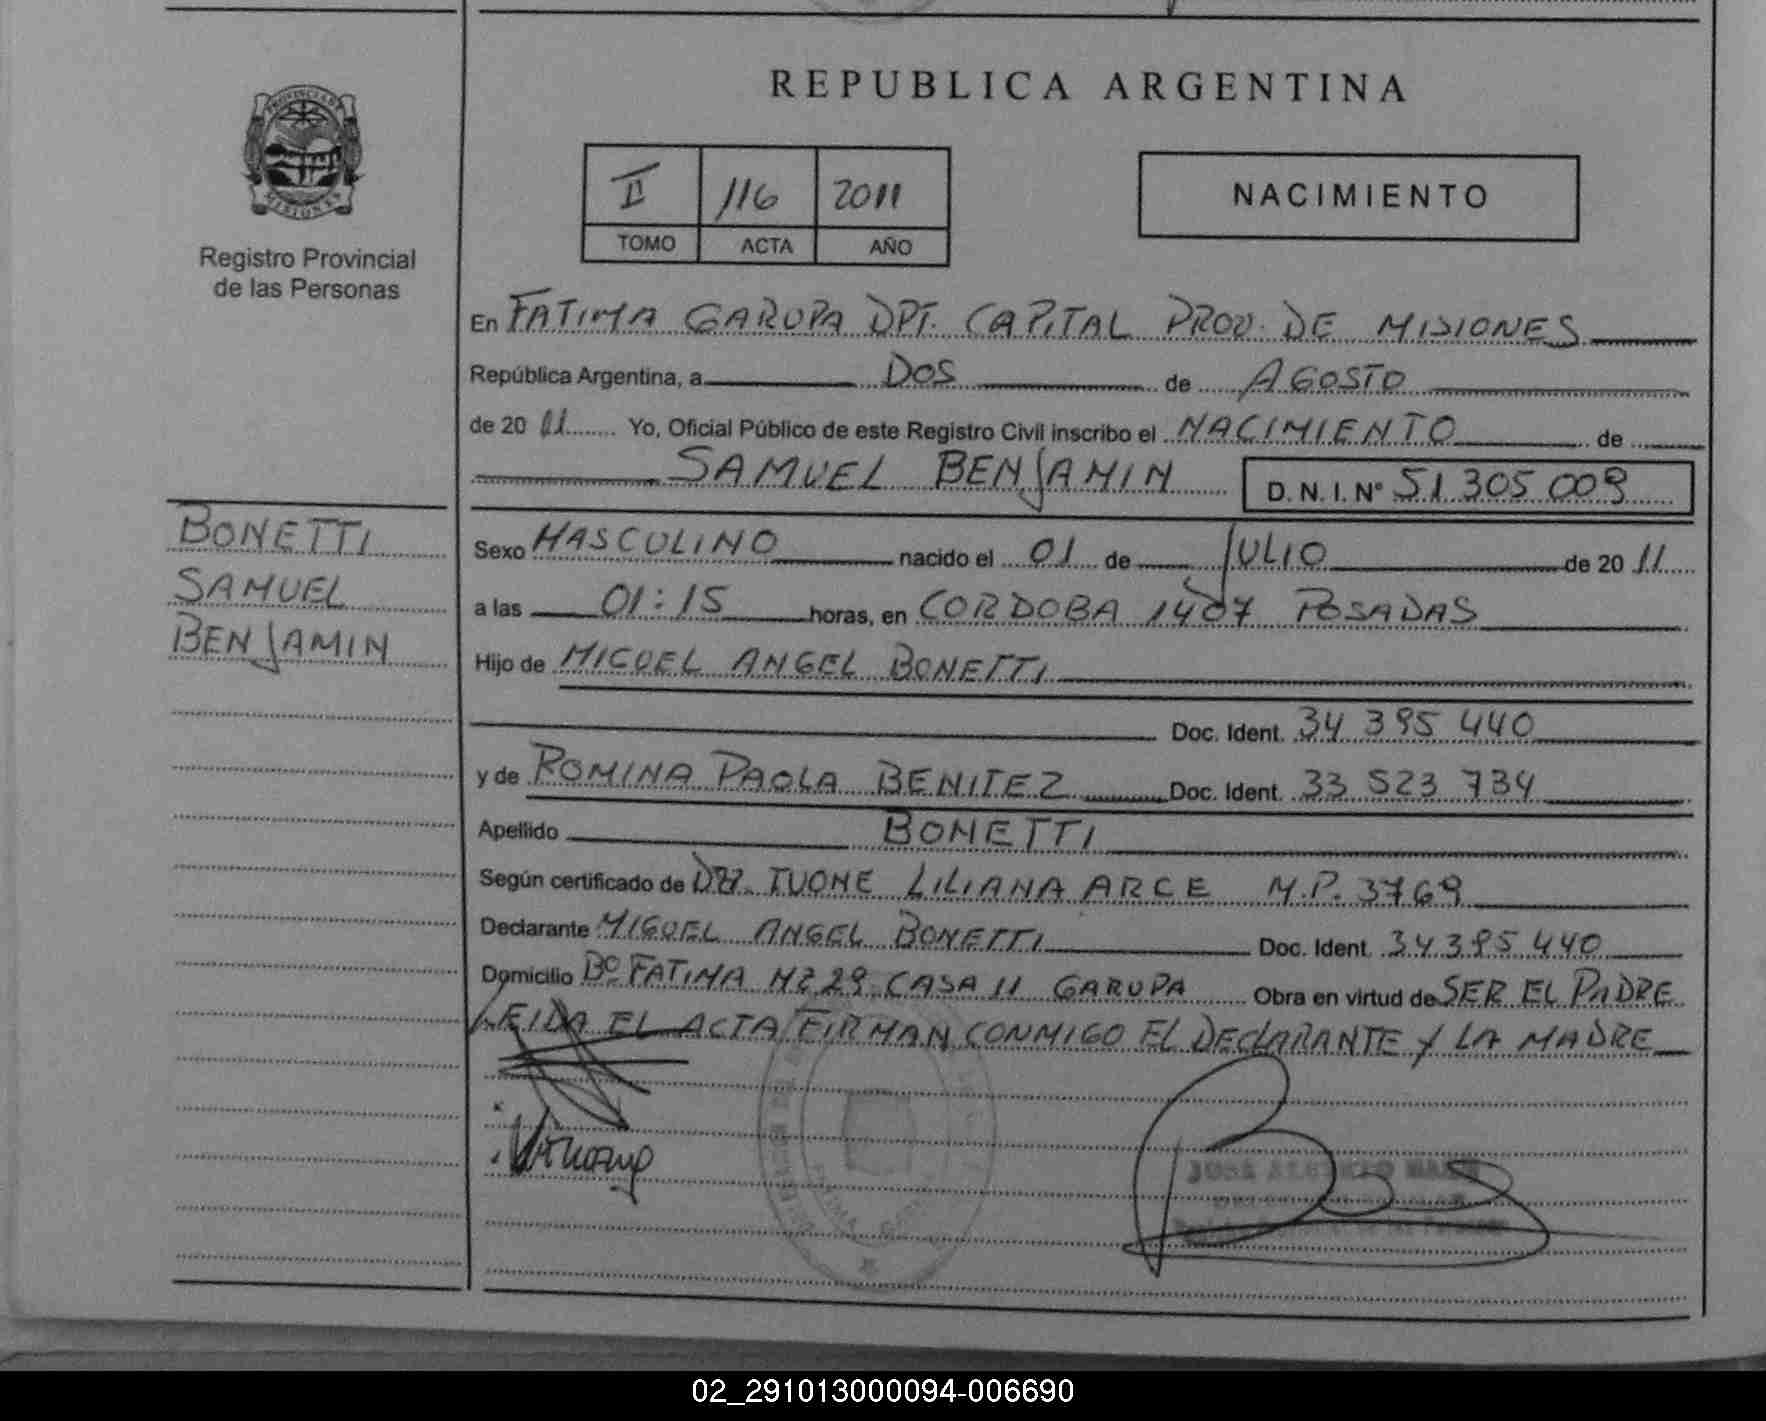 REPUBLICA ARGENTINA
PROVINCIA DE
MISIONES
Registro Provincial
de las Personas
II 116 2011
TOMO ACTA AÑO
NACIMIENTO
En FATIMA GARUPA DPT. CAPITAL PROV. DE MISIONES
República Argentina, a DOS de AGOSTO
de 20 11 Yo, Oficial Público de este Registro Civil inscribo el NACIMIENTO de
SAMUEL BENJAMIN D. N. I. Nº 51.305.009
BONETTI
SAMUEL
BENJAMIN
Sexo MASCULINO nacido el 01 de JULIO de 20 11
a las 01:15 horas, en CORDOBA 1407 POSADAS
Hijo de MIGUEL ANGEL BONETTI
Doc. Ident. 34 395 440
y de ROMINA PAOLA BENITEZ Doc. Ident. 33 523 734
Apellido BONETTI
Según certificado de LILIANA ARCE M.P. 3769
Declarante MIGUEL ANGEL BONETTI Doc. Ident. 34 395 440
Domicilio Bº FATIMA MZ 29 CASA 11 GARUPA Obra en virtud de SER EL PADRE
LEIDA EL ACTA FIRMAN CONMIGO EL DECLARANTE Y LA MADRE
JOSÉ
02_291013000094-006690